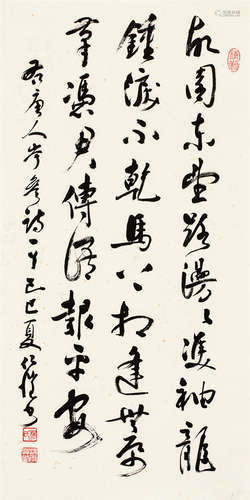 故園東望路漫〻雙袖龍
鍾淚不乾馬上相逢無紙
筆憑君傳語報平安
右唐人岑參詩一首己巳夏仁愷書